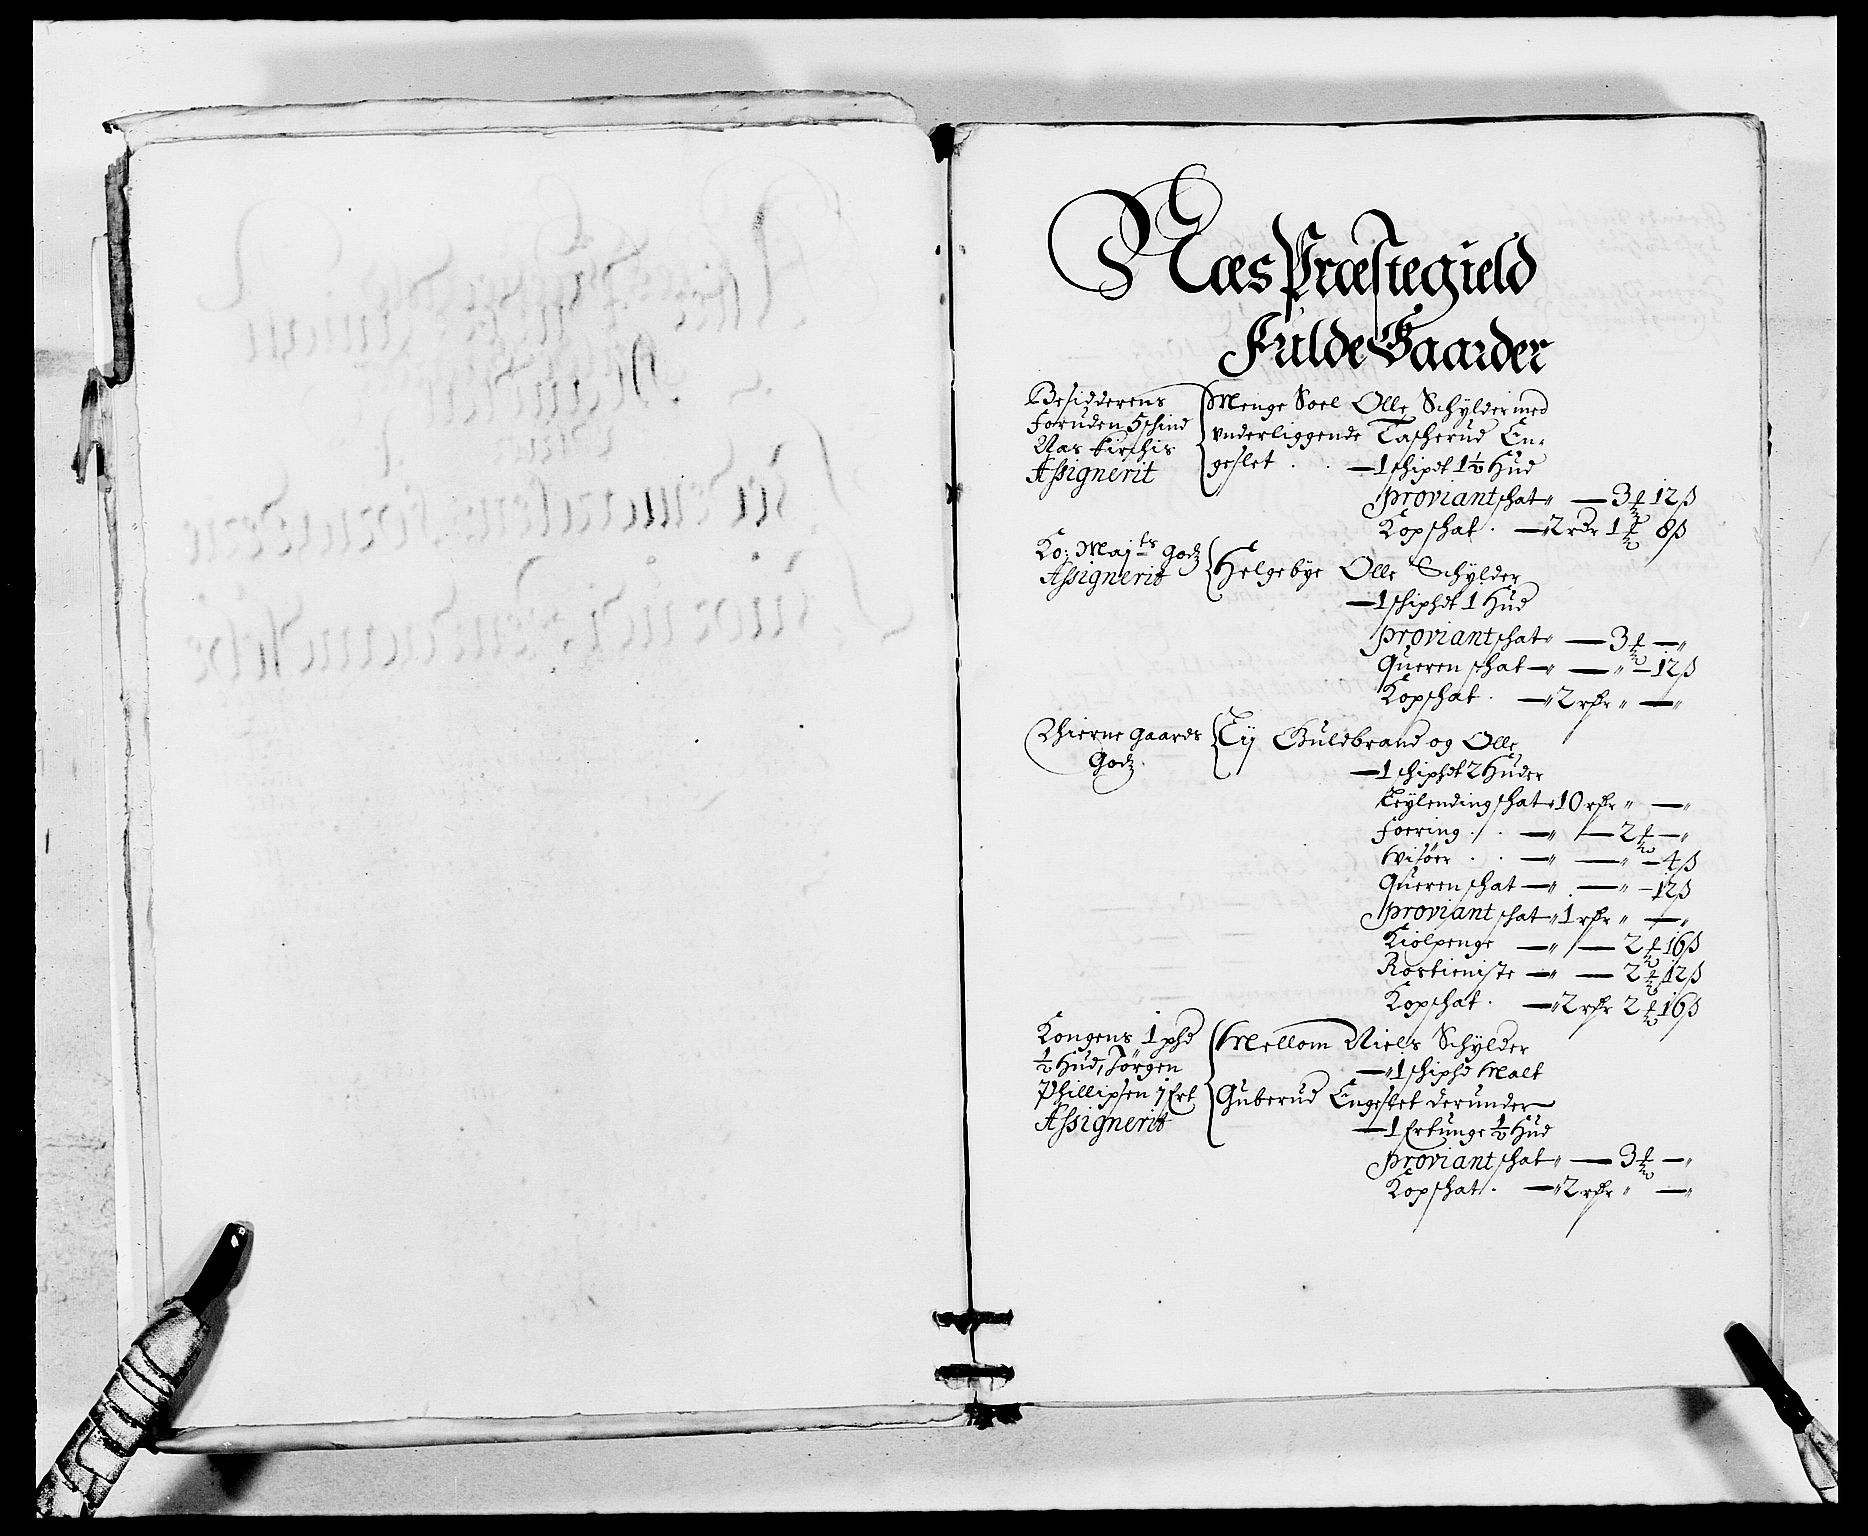 Næs Præstegield
Fulde Gaarder
Besidderens
foruden 5 schind
Næs Kirchis
Assignerit
Menge Soel Olle Schylder med
underliggende Tascherud En-
geslet . . — 1 schipdt 1½ Hud
Proviant schat „ — 3 12 ß
Kopschat . — „ 2 rdr 1 8 ß
Ko: Maj:ts Godz
Assignerit
Helgebye Olle Schylder
— 1 schipdt 1 Hud
Proviant schat „ — 3 — „
Queren schat — „ — „ — 12 ß
Kopschat . — „ 2 rdr „ — „
Bierne Gaards
Godz
Tij Guldbrand og Olle
— 1 schipdt 2 Huder
Leylending schat „ 10 rdr „ — „
Foering . . — „ — 2 — „
Wisöer . . — „ — „ — 4 ß
Queren schat — „ — „ — 12 ß
Proviant schat „ 1 rdr „ — „
Kiölpenge — „ — 2 16 ß
Rostieniste — „ — 2 12 ß
Kopschat . — „ 2 rdr 2 16 ß
Kongens 1 phd
½ Hud, Jörgen
Phillipsen 1 Ert
Assignerit
Mellom Niels Schylder
— „ 1 schiphd Malt
Guberud Engeslet derunder
— 1 Ertunge ½ Hud
Proviant schat „ — 3 — „
Kopschat . — „ 2 rdr „ — „